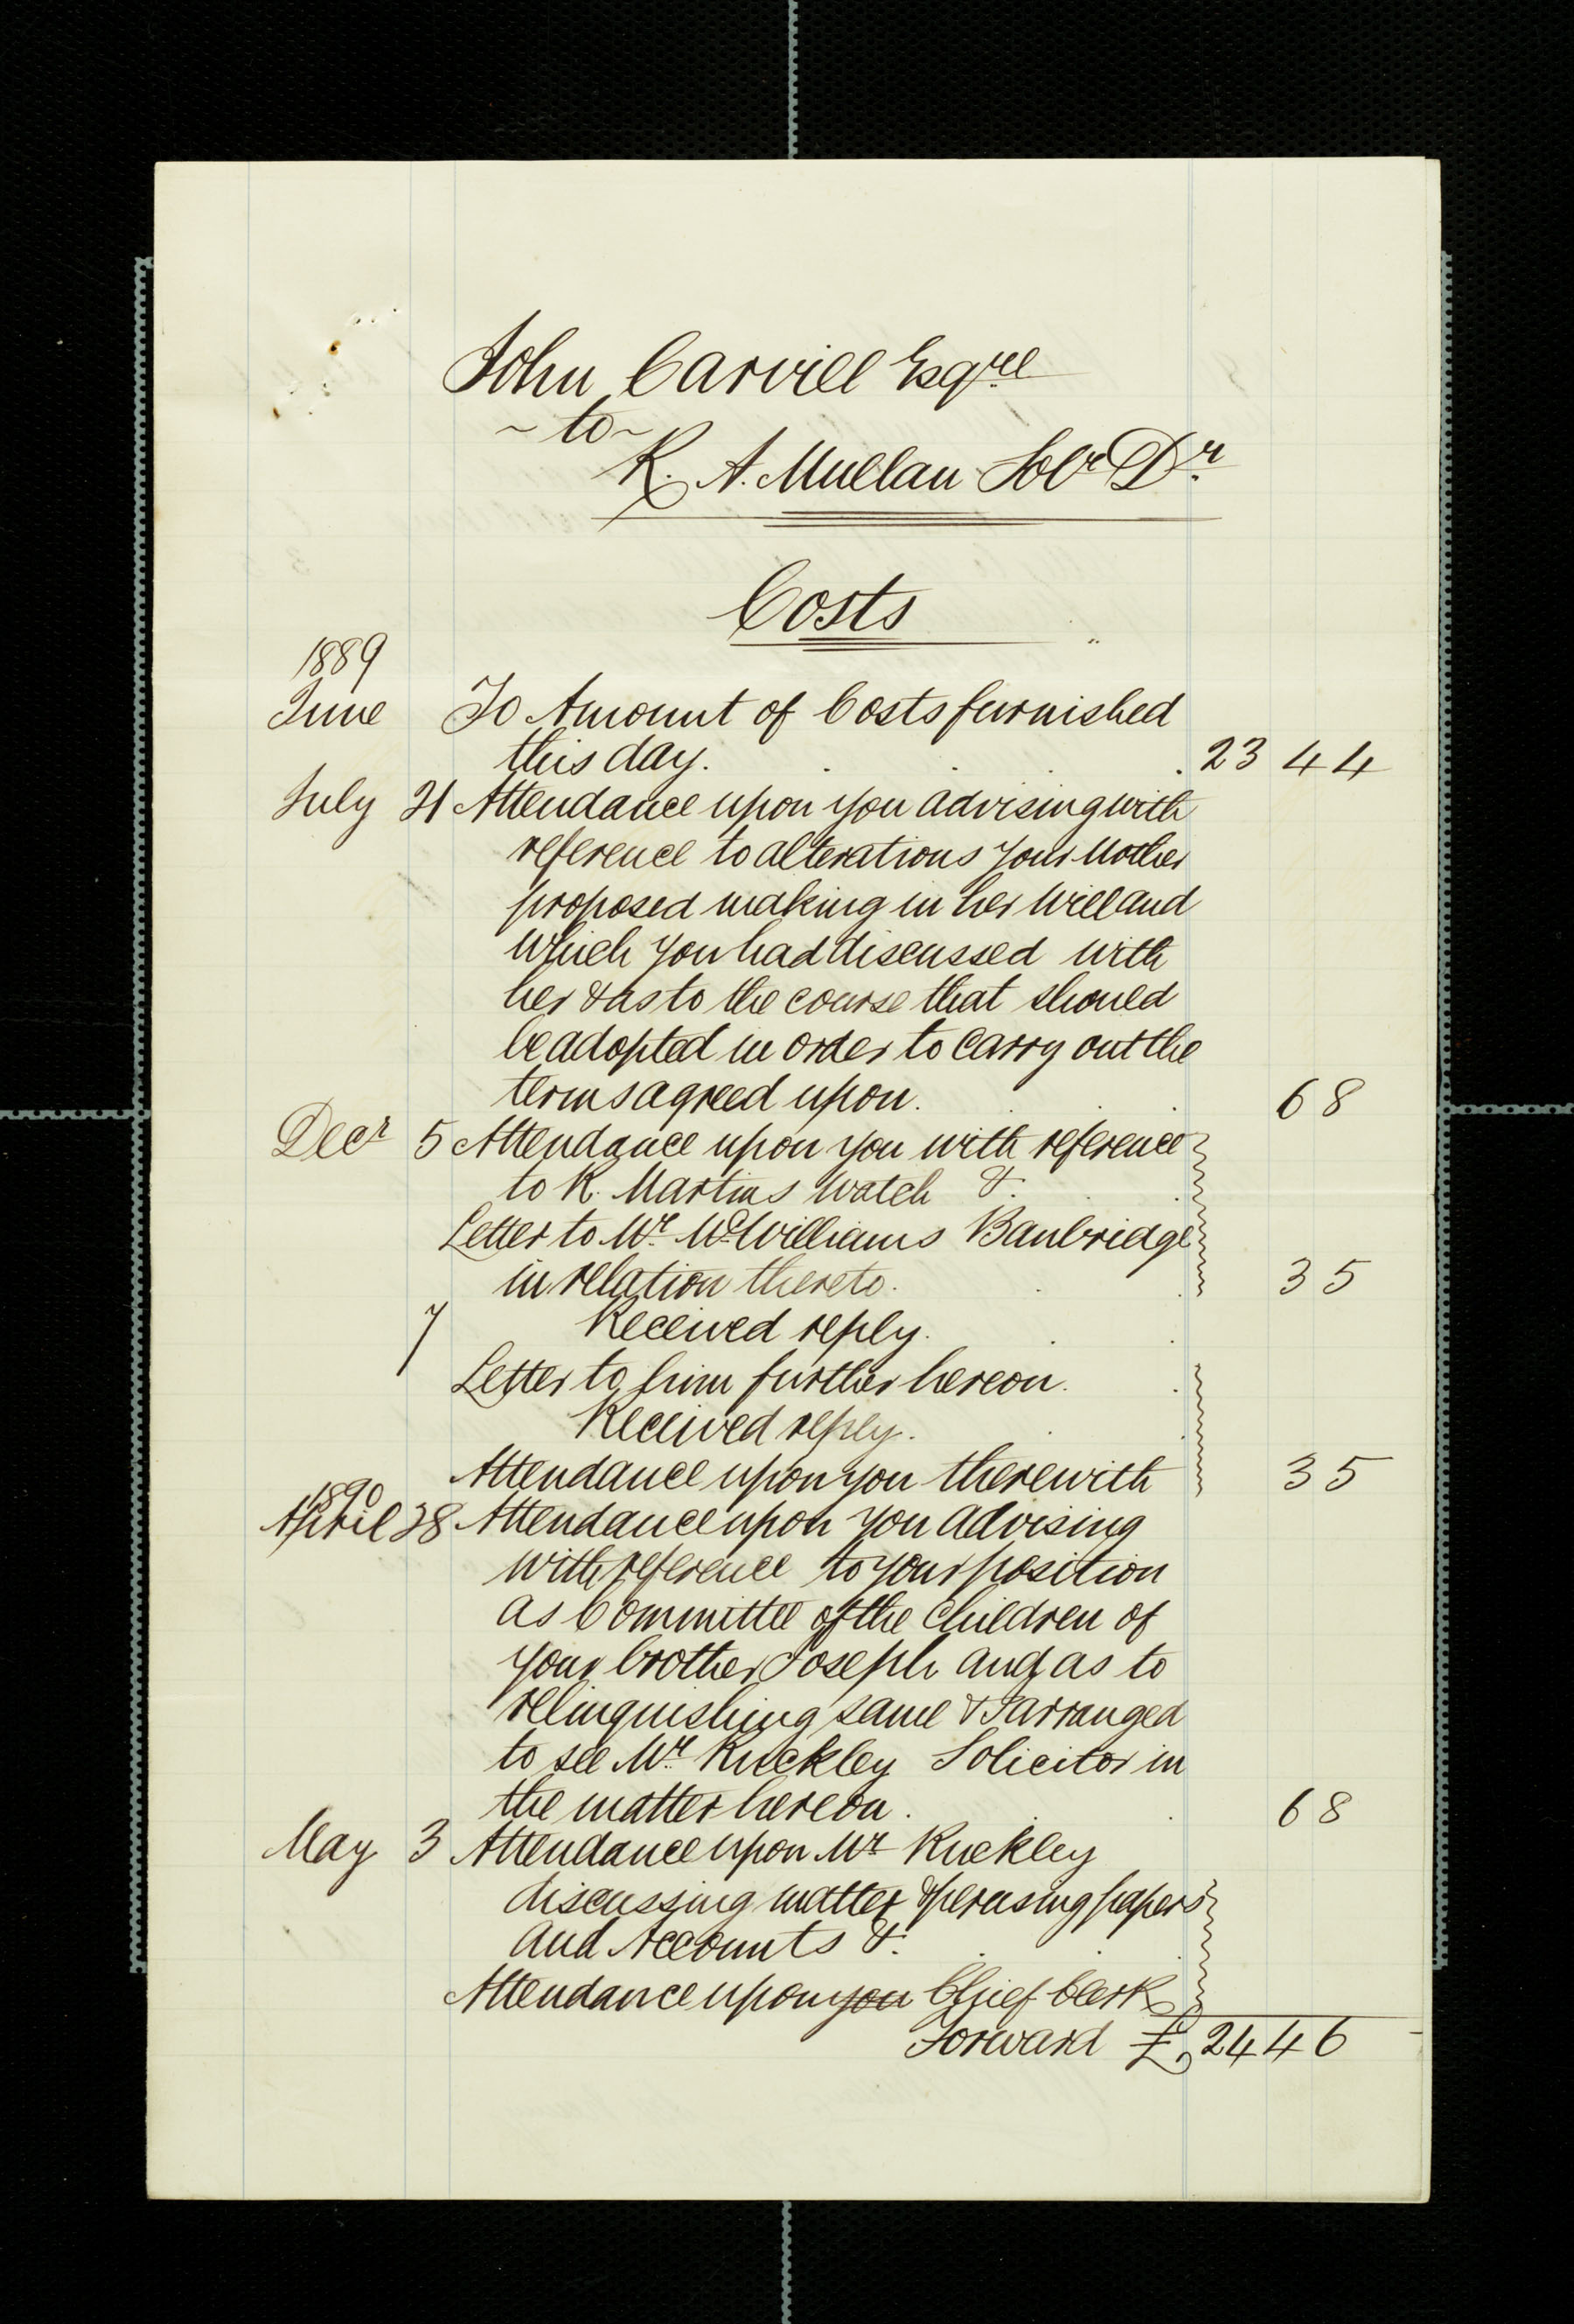 John Carvill Esqre
~ to ~
R. A. Mullan Solr Dr.
Costs
1889
June To Amount of Costs furnished
this day. 23 4 4
July 21 Attendance upon you advising with
reference to alterations your Mother
proposed making in her Will and
which you had discussed with
her & as to the course that should
be adopted in order to carry out the
terms agreed upon. 6 8
Decr 5 Attendance upon you with reference
to R. Martins Watch &.
Letter to Mr. McWilliams Banbridge
in relation thereto. 3 5
7 Received reply.
Letter to him further hereon.
Received reply.
Attendance upon you therewith 3 5
1890
April 28 Attendance upon you advising
with reference to your position
as Committee of the Children of
your brother Joseph and as to
relinquishing same & I arranged
to see Mr. Ruckley Solicitor in
the matter hereon. 6 8
May 3 Attendance upon Mr Ruckley
discussing matter & perusing papers
and Accounts &.
Attendance upon you Chief Clerk
Forward £ 24 4 6